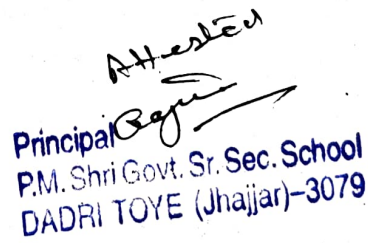 Attested
Principal
P.M. Shri Govt. Sr. Sec. School
DADRI TOYE (Jhajjar)-3079